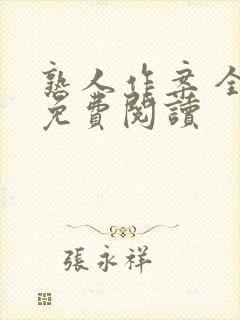 熟人作案全
免費閱讀
張永祥